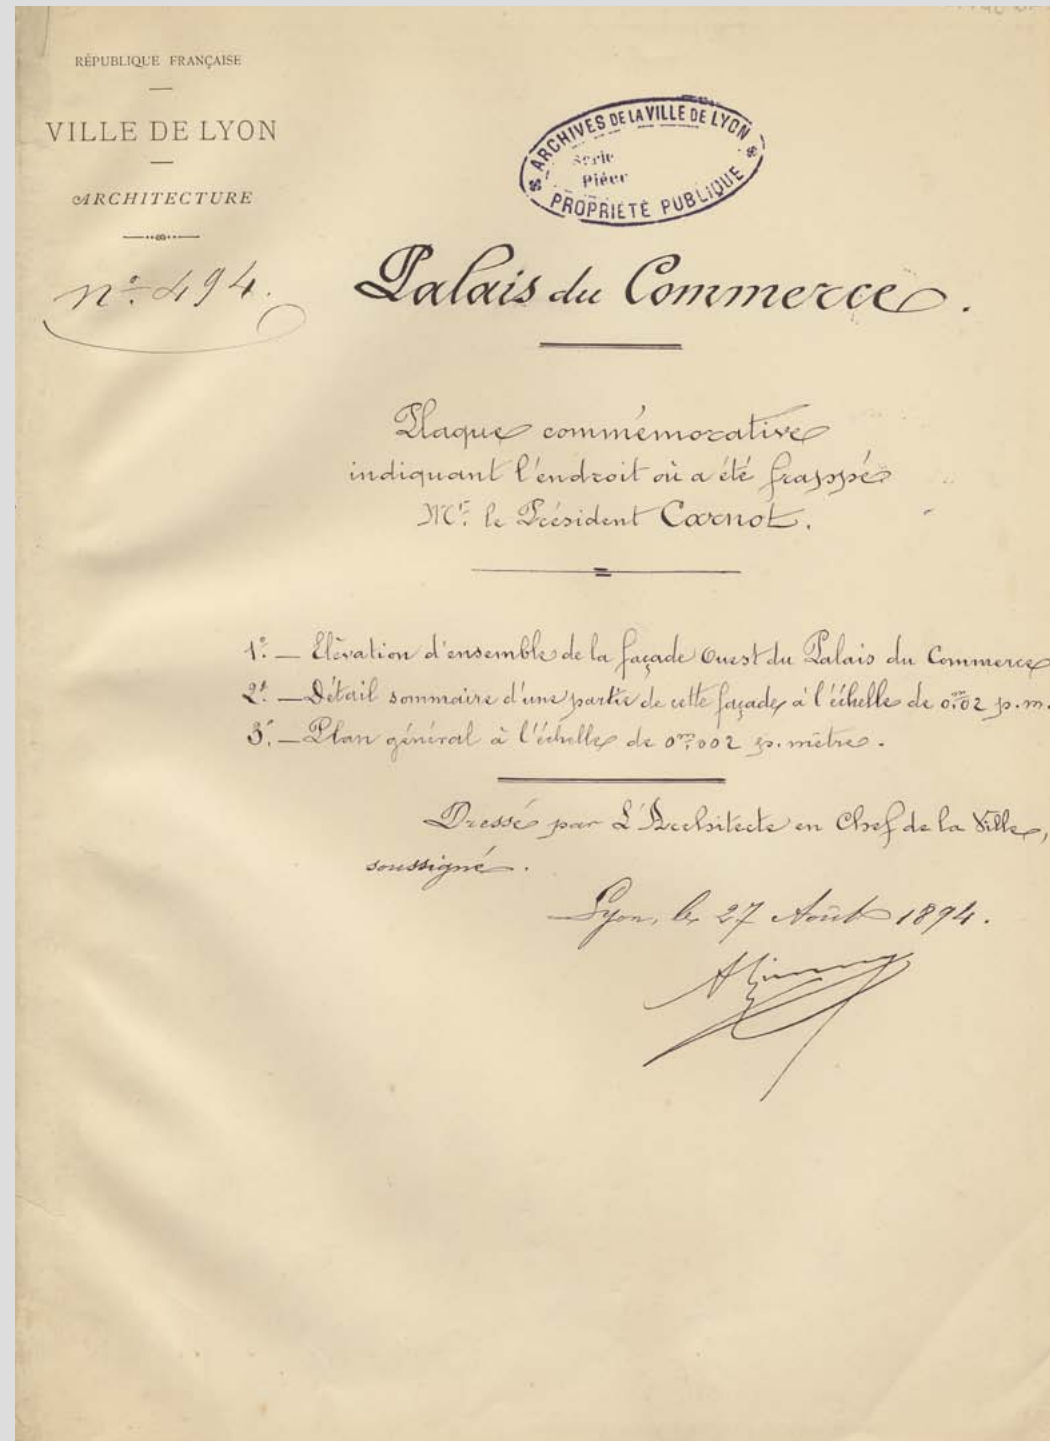 RÉPUBLIQUE FRANÇAISE
VILLE DE LYON
ARCHITECTURE
n° 494.
ARCHIVES DE LA VILLE DE LYON
Série
Pièce
PROPRIÉTÉ PUBLIQUE
Palais du Commerce.
Plaque commémorative
indiquant l'endroit où a été frappé
Mr. le Président Carnot.
1°. — Elévation d'ensemble de la façade Ouest du Palais du Commerce
2°. — Détail sommaire d'une partie de cette façade, à l'échelle de 0m,02 p.m.
3°. — Plan général à l'échelle de 0m,002 p. mètre.
Dressé par L'Architecte en Chef de la Ville,
soussigné.
Lyon, le 27 Août 1894.